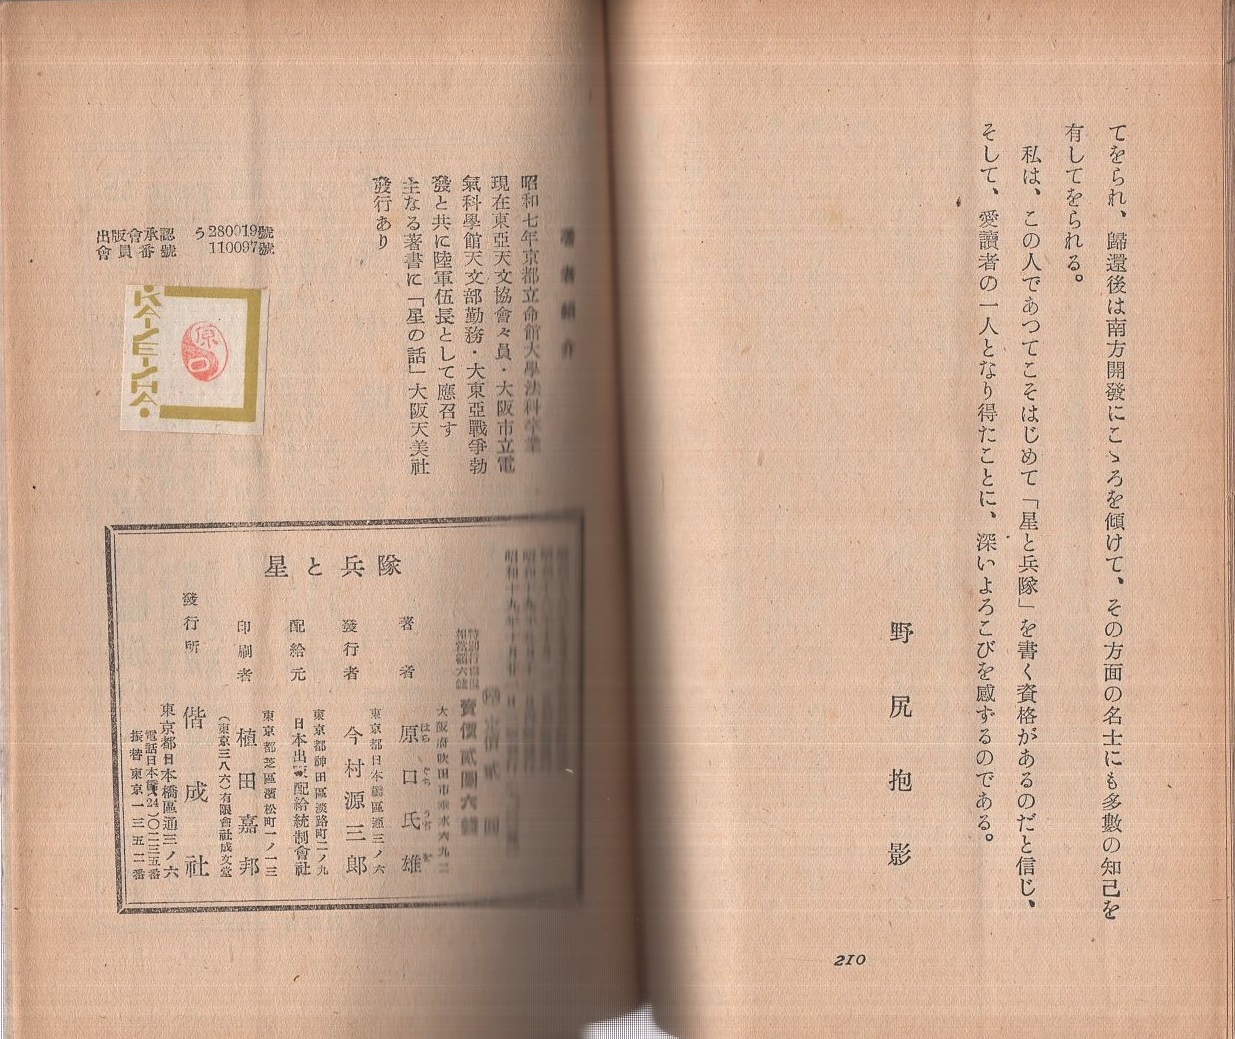 てをられ、歸還後は南方開發にこゝろを傾けて、その方面の名士にも多數の知己を
有してをられる。
私は、この人であつてこそはじめて「星と兵隊」を書く資格があるのだと信じ、
そして、愛讀者の一人となり得たことに、深いよろこびを感ずるのである。
野尻抱影
210
著者紹介
昭和七年京都立命館大學法科卒業
現在東亞天文協會々員・大阪市立電
氣科學館天文部勤務・大東亞戰爭勃
發と共に陸軍伍長として應召す
主なる著書に「星の話」大阪天美社
發行あり
出版會承認 う280019號
會員番號 110097號
KAISEISHA・
原口
星と兵隊
定價貳圓
特別行爲税相當額六錢
賣價貳圓六錢
大阪府吹田市垂水六九二
著者 原口氏雄
はらぐちうぢを
東京都日本橋區通三ノ六
發行者 今村源三郎
東京都神田區淡路町二ノ九
配給元 日本出版配給統制會社
東京都芝區濱松町一ノ一三
印刷者 植田嘉邦
(東京三八六)有限會社成文堂
發行所 偕成社
東京都日本橋區通三ノ六
電話日本橋(24)〇二三五番
振替東京一三五二番